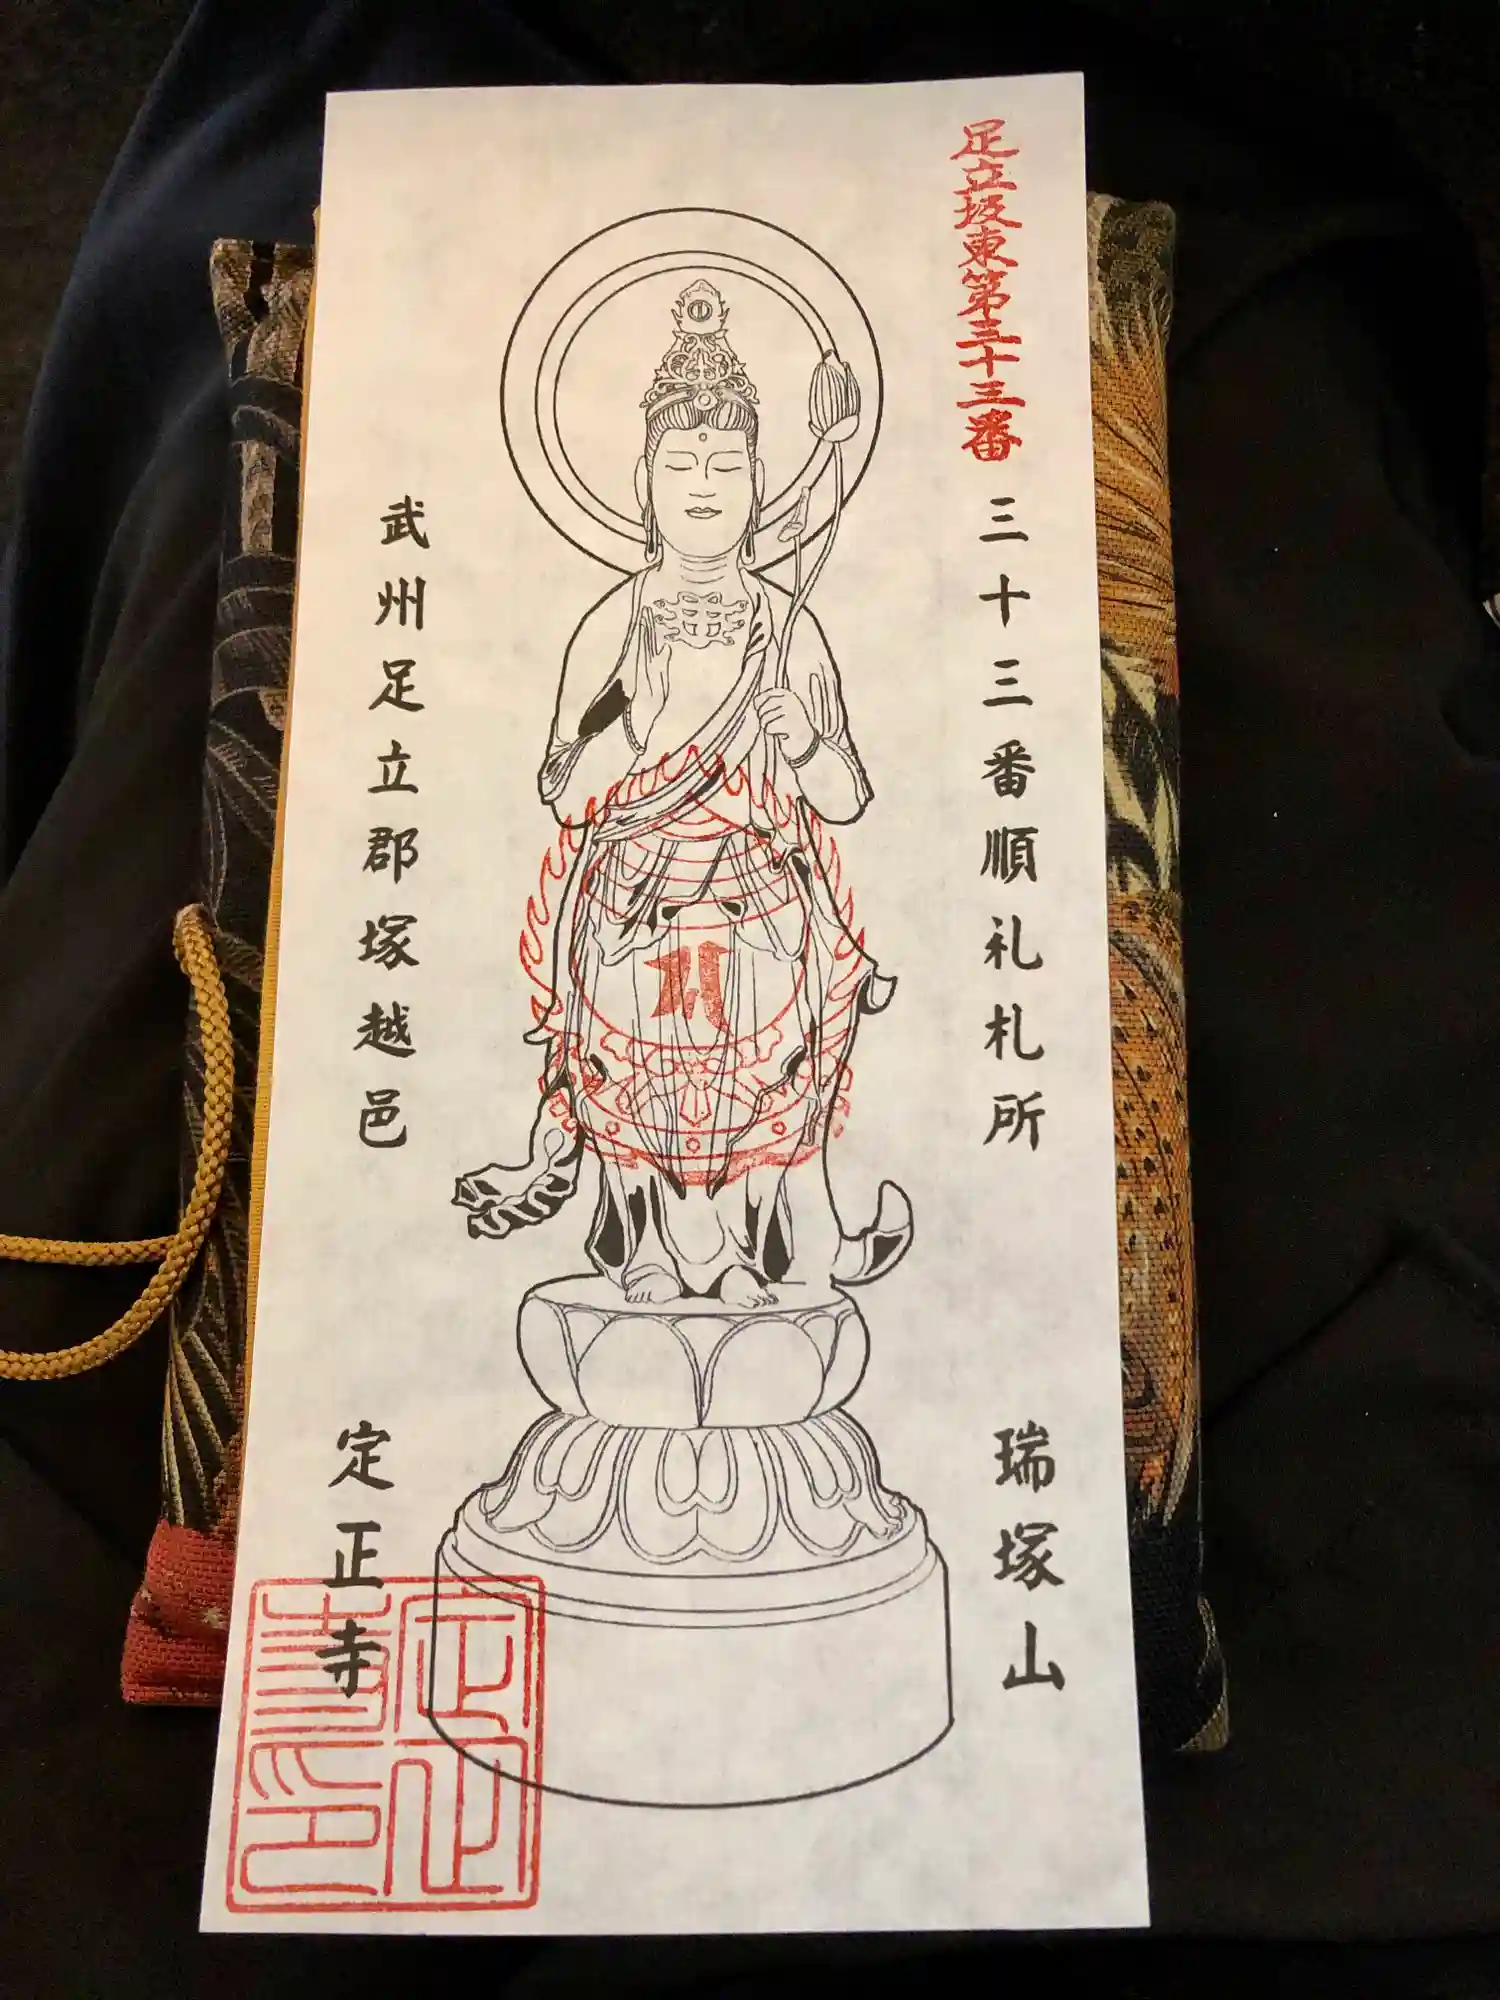 足立坂東第三十三番
三十三番順礼札所
瑞塚山
武州足立郡塚越邑
定正寺
定正寺印